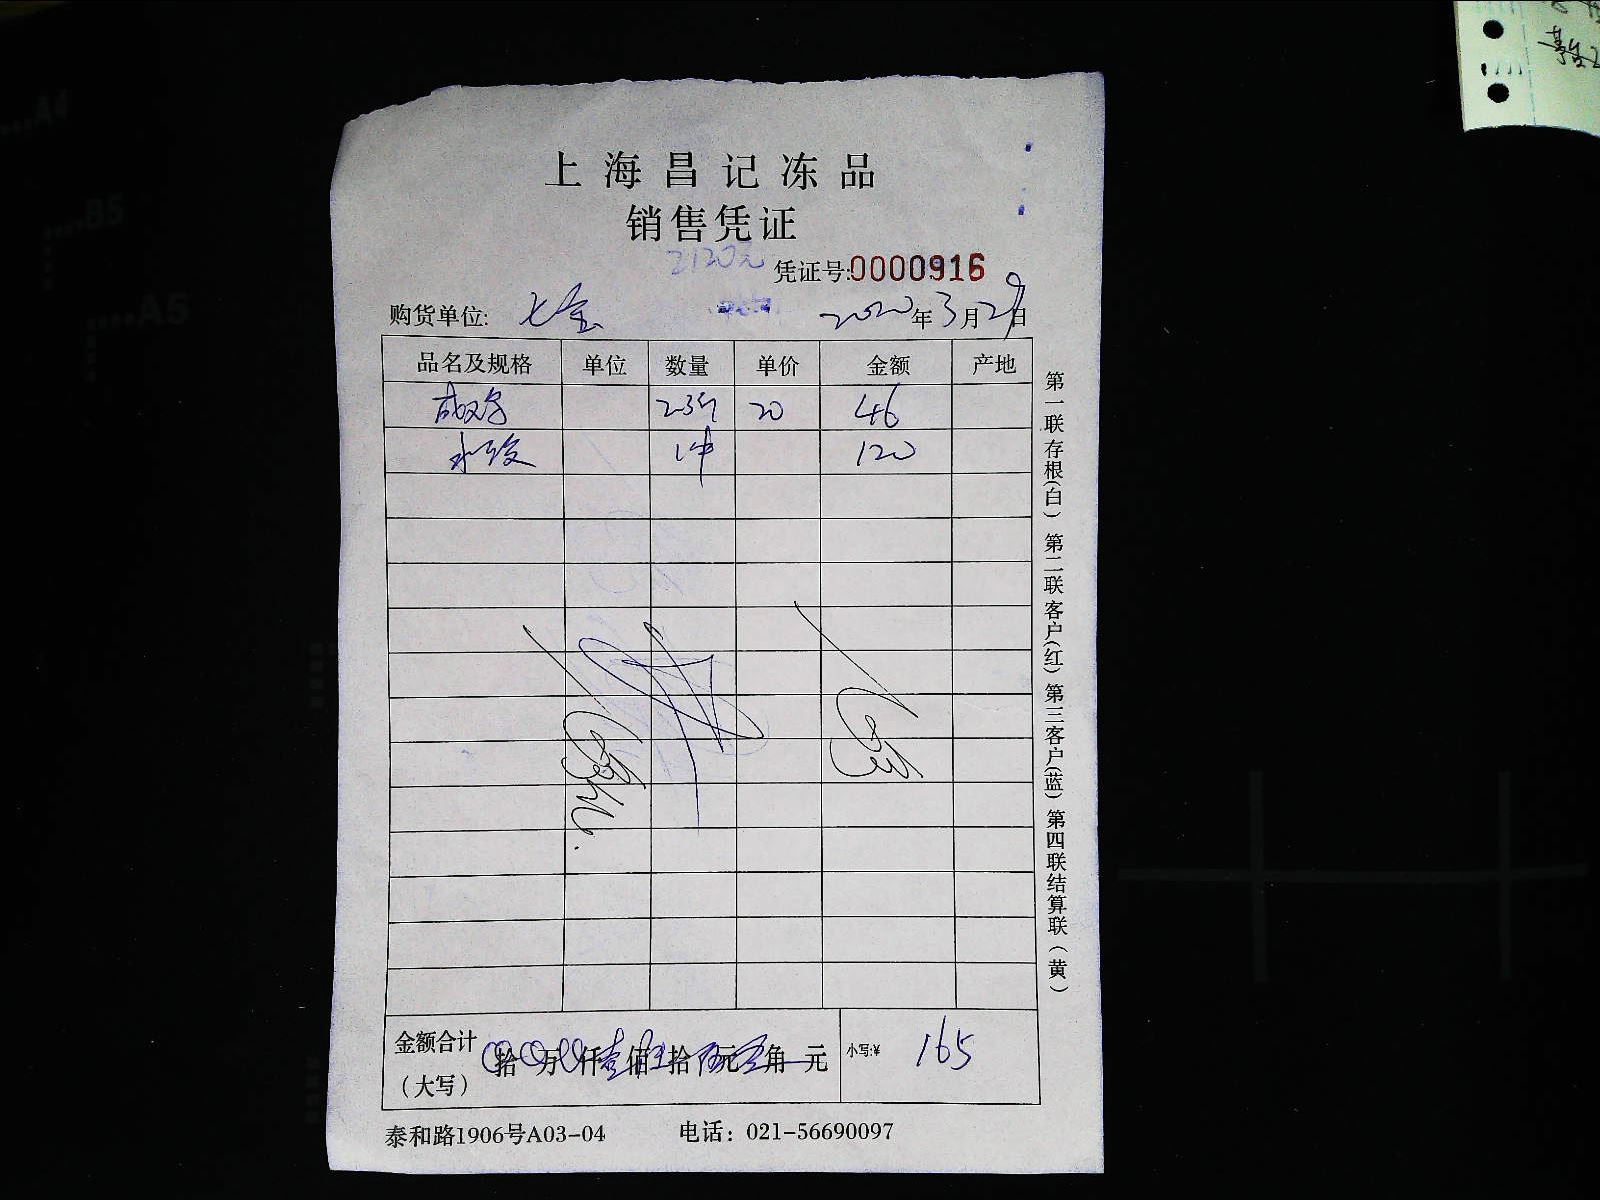 上海昌记冻品
销售凭证
2120元
凭证号:0000916
购货单位: 七宝 2020年3月29日
品名及规格 单位 数量 单价 金额 产地
咸鸡 2.3斤 20 46
水饺 1件 120
金额合计 拾 万 仟壹佰陆拾伍元 角 元 小写:¥ 165
(大写)
泰和路1906号A03-04 电话: 021-56690097
第一联存根(白) 第二联客户(红) 第三客户(蓝) 第四联结算联(黄)
A4
B5
A5